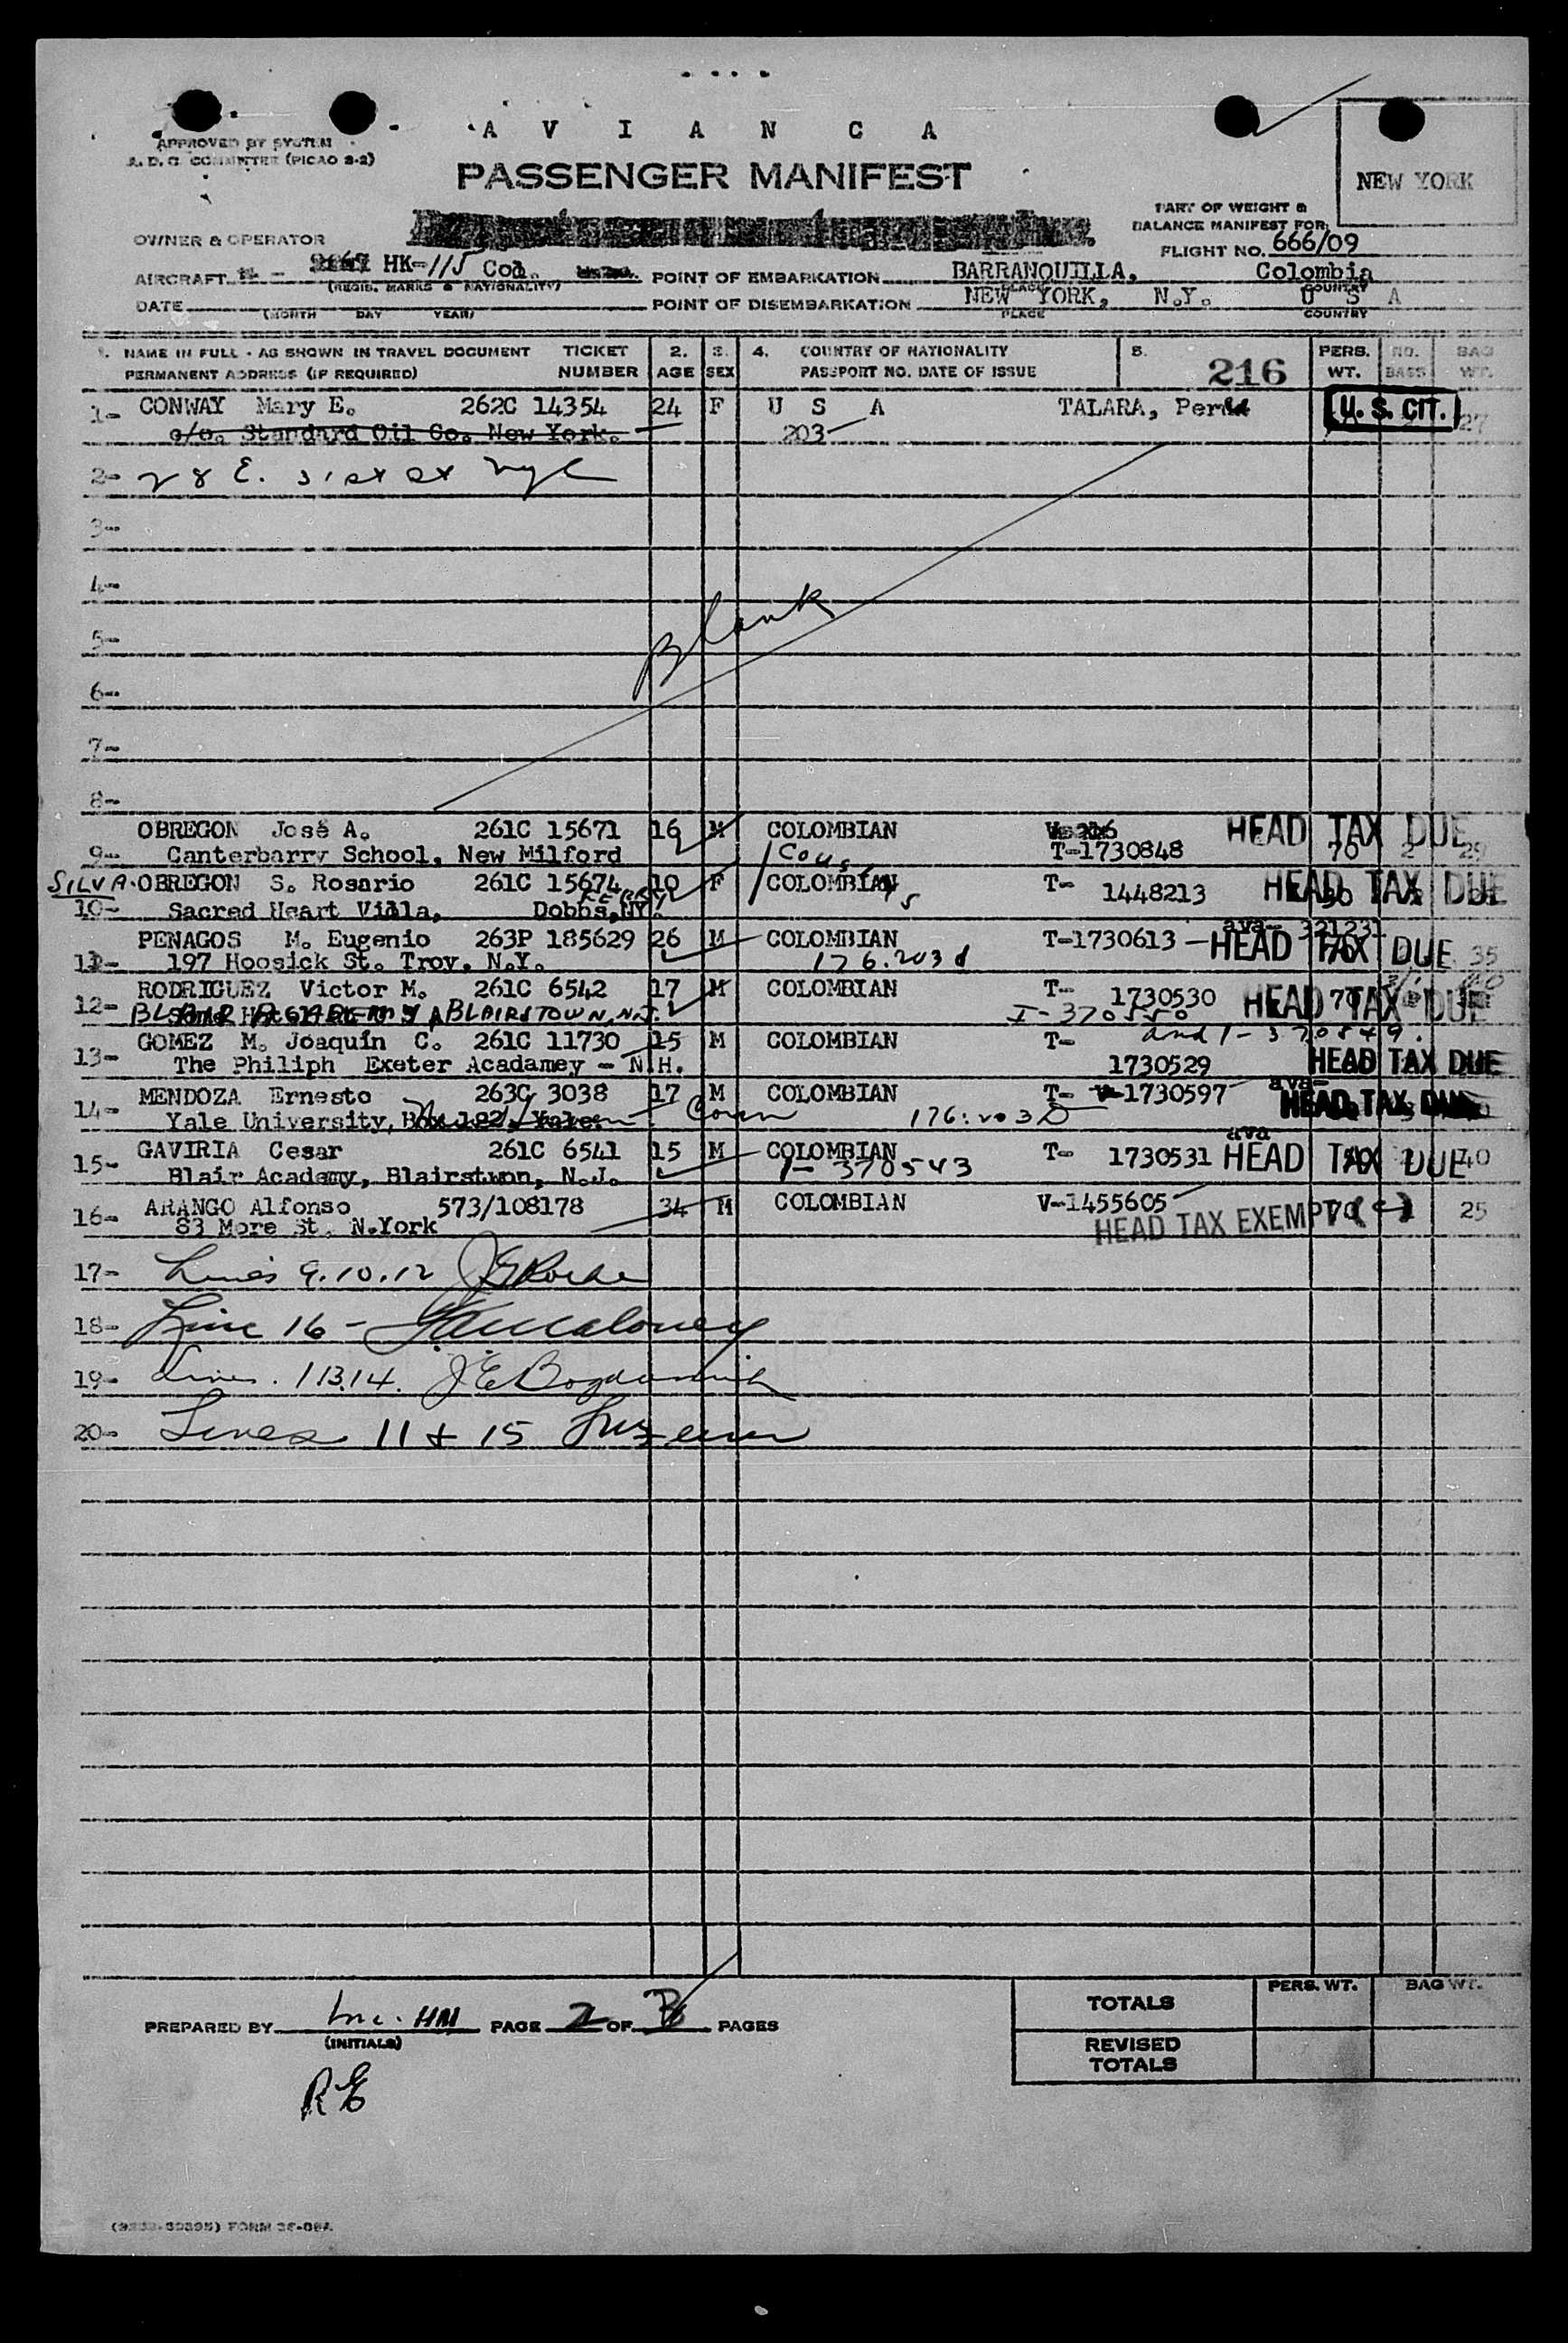 A V I A N C A
APPROVED BY SYSTEM
A. D. C. COMMITTEE (PICAO S-2)
PASSENGER MANIFEST
NEW YORK
PART OF WEIGHT &
BALANCE MANIFEST FOR:
OWNER & OPERATOR
FLIGHT NO. 666/09
AIRCRAFT HK-115 Col. POINT OF EMBARKATION BARRANQUILLA, Colombia
(REGIS. MARKS & NATIONALITY) PLACE COUNTRY
DATE POINT OF DISEMBARKATION NEW YORK, N.Y. U S A
(MONTH DAY YEAR) PLACE COUNTRY
1. NAME IN FULL - AS SHOWN IN TRAVEL DOCUMENT TICKET 2. 3. 4. COUNTRY OF NATIONALITY 5. PERS. NO. BAG
PERMANENT ADDRESS (IF REQUIRED) NUMBER AGE SEX PASSPORT NO. DATE OF ISSUE 216 WT. BAGS WT.
1- CONWAY Mary E. 262C 14354 24 F U S A TALARA, Peru U. S. CIT. 27
c/o. Standard Oil Co. New York. 203
2- 28 E. 31st st nyc
3-
4-
Blank
5-
6-
7-
8-
OBREGON José A. 261C 15671 16 M COLOMBIAN HEAD TAX DUE
9- Canterbarry School, New Milford T-1730848 70 2 29
Cousins
SILVA OBREGON S. Rosario 261C 15674 10 F COLOMBIAN T- 1448213 HEAD TAX DUE
10- Sacred Heart Villa, Dobbs FERRY, NY.
PENAGOS M. Eugenio 263P 185629 26 M COLOMBIAN T-1730613 HEAD TAX DUE 35
11- 197 Hoosick St. Troy. N.Y. 176.203d
RODRIGUEZ Victor M. 261C 6542 17 M COLOMBIAN T- 1730530 HEAD TAX DUE 70
12- BLAIR ACADEMY, BLAIRSTOWN, N.J. I-370550
GOMEZ M. Joaquín C. 261C 11730 15 M COLOMBIAN T- and 1-370549.
13- The Philiph Exeter Acadamey - N.H. 1730529 HEAD TAX DUE
MENDOZA Ernesto 263C 3038 17 M COLOMBIAN T- 1730597 ava- HEAD TAX DUE
14- Yale University, New Haven Conn 176.203D
GAVIRIA Cesar 261C 6541 15 M COLOMBIAN T- 1730531 ava HEAD TAX DUE 40
15- Blair Academy, Blairstwon, N.J. 1-370543
ARANGO Alfonso 573/108178 34 M COLOMBIAN V-1455605 70 25
16- 83 More St. N.York HEAD TAX EXEMPT (c)
17- Lines 9.10.12
18- Line 16 -
19- Lines. 1 13.14.
20- Lines 11 & 15
PREPARED BY HM PAGE 2 OF PAGES
(INITIALS)
PERS. WT. BAG WT.
TOTALS
REVISED
TOTALS
RE